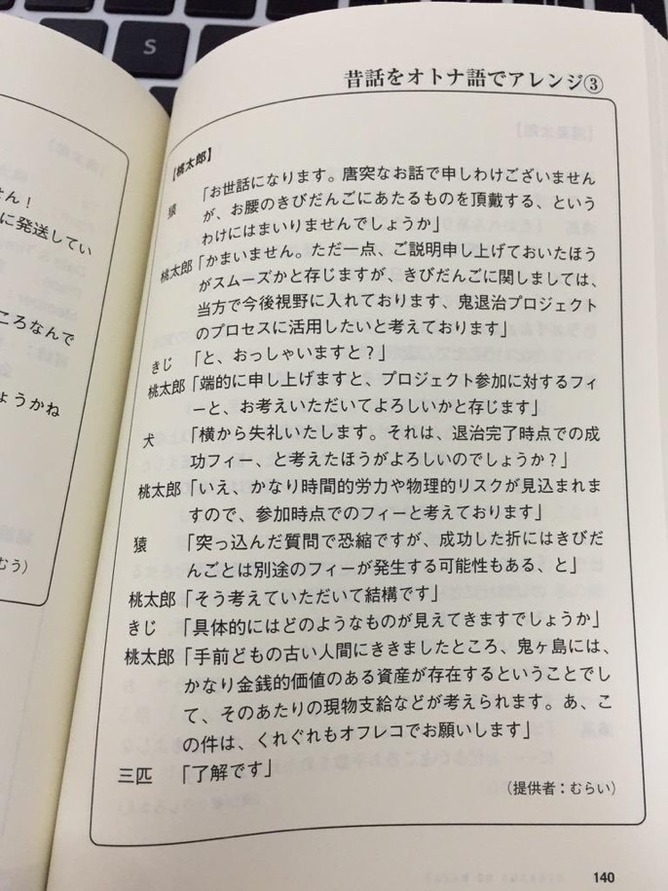 S
昔話をオトナ語でアレンジ③
【桃太郎】
猿 「お世話になります。唐突なお話で申しわけございません
が、お腰のきびだんごにあたるものを頂戴する、という
わけにはまいりませんでしょうか」
桃太郎「かまいません。ただ一点、ご説明申し上げておいたほう
がスムーズかと存じますが、きびだんごに関しましては、
当方で今後視野に入れております、鬼退治プロジェクト
のプロセスに活用したいと考えております」
きじ 「と、おっしゃいますと？」
桃太郎「端的に申し上げますと、プロジェクト参加に対するフィ
ーと、お考えいただいてよろしいかと存じます」
犬 「横から失礼いたします。それは、退治完了時点での成
功フィー、と考えたほうがよろしいのでしょうか？」
桃太郎「いえ、かなり時間的労力や物理的リスクが見込まれま
すので、参加時点でのフィーと考えております」
猿 「突っ込んだ質問で恐縮ですが、成功した折にはきびだ
んごとは別途のフィーが発生する可能性もある、と」
桃太郎「そう考えていただいて結構です」
きじ 「具体的にはどのようなものが見えてきますでしょうか」
桃太郎「手前どもの古い人間にききましたところ、鬼ヶ島には、
かなり金銭的価値のある資産が存在するということでし
て、そのあたりの現物支給などが考えられます。あ、こ
の件は、くれぐれもオフレコでお願いします」
三匹 「了解です」
（提供者：むらい）
140
せん！
に発送してい
ころなんで
ょうかね
むう）